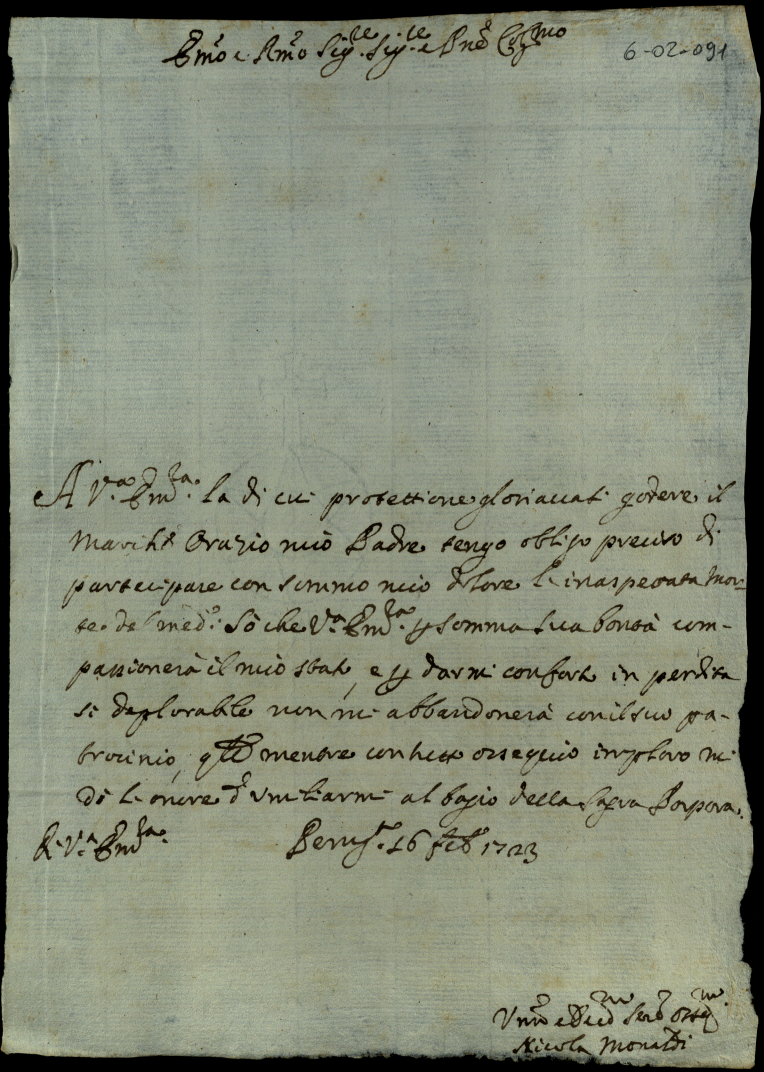 Emo e Rmo Sig.re Sig.re e Pne Colmo
6-02-091
A V.a Em.za la di cui protettione gloriavasi godere il
March.e Orazio mio Padre tengo obligo preciso di
partecipare con sommo mio dolore l'inaspettata mor-
te del med.o Sò che V.a Em.za p somma sua bontà com-
passionerà il mio stato, e p darmi conforto in perdita
si deplorabile non mi abbandonerà con il suo pa-
trocinio, mentre con tutto ossequio imploro mi
dì l'onore d'umiliarmi al bagio della Sagra Porpora.
Di V.a Em.za Perug.a 16 Feb.o 1723
Um.o e Dev.mo Ser.e Osseq.mo
Nicola Monaldi